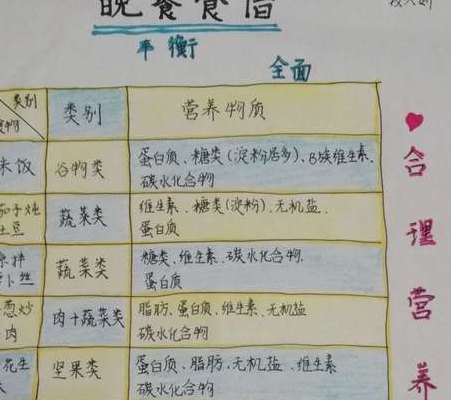 晚餐食谱
平衡
全面
类别
食物
类别
营养物质
米饭
谷物类
蛋白质、糖类(淀粉居多)、B族维生素、
碳水化合物
茄子炖
土豆
蔬菜类
维生素、糖类(淀粉)、无机盐、
蛋白质
凉拌
萝卜丝
蔬菜类
糖类、维生素、碳水化合物、
蛋白质
葱炒
肉
肉+蔬菜类
脂肪、蛋白质、维生素、无机盐
碳水化合物
花生
坚果类
蛋白质、脂肪、无机盐、维生素
碳水化合物
合
理
营
养